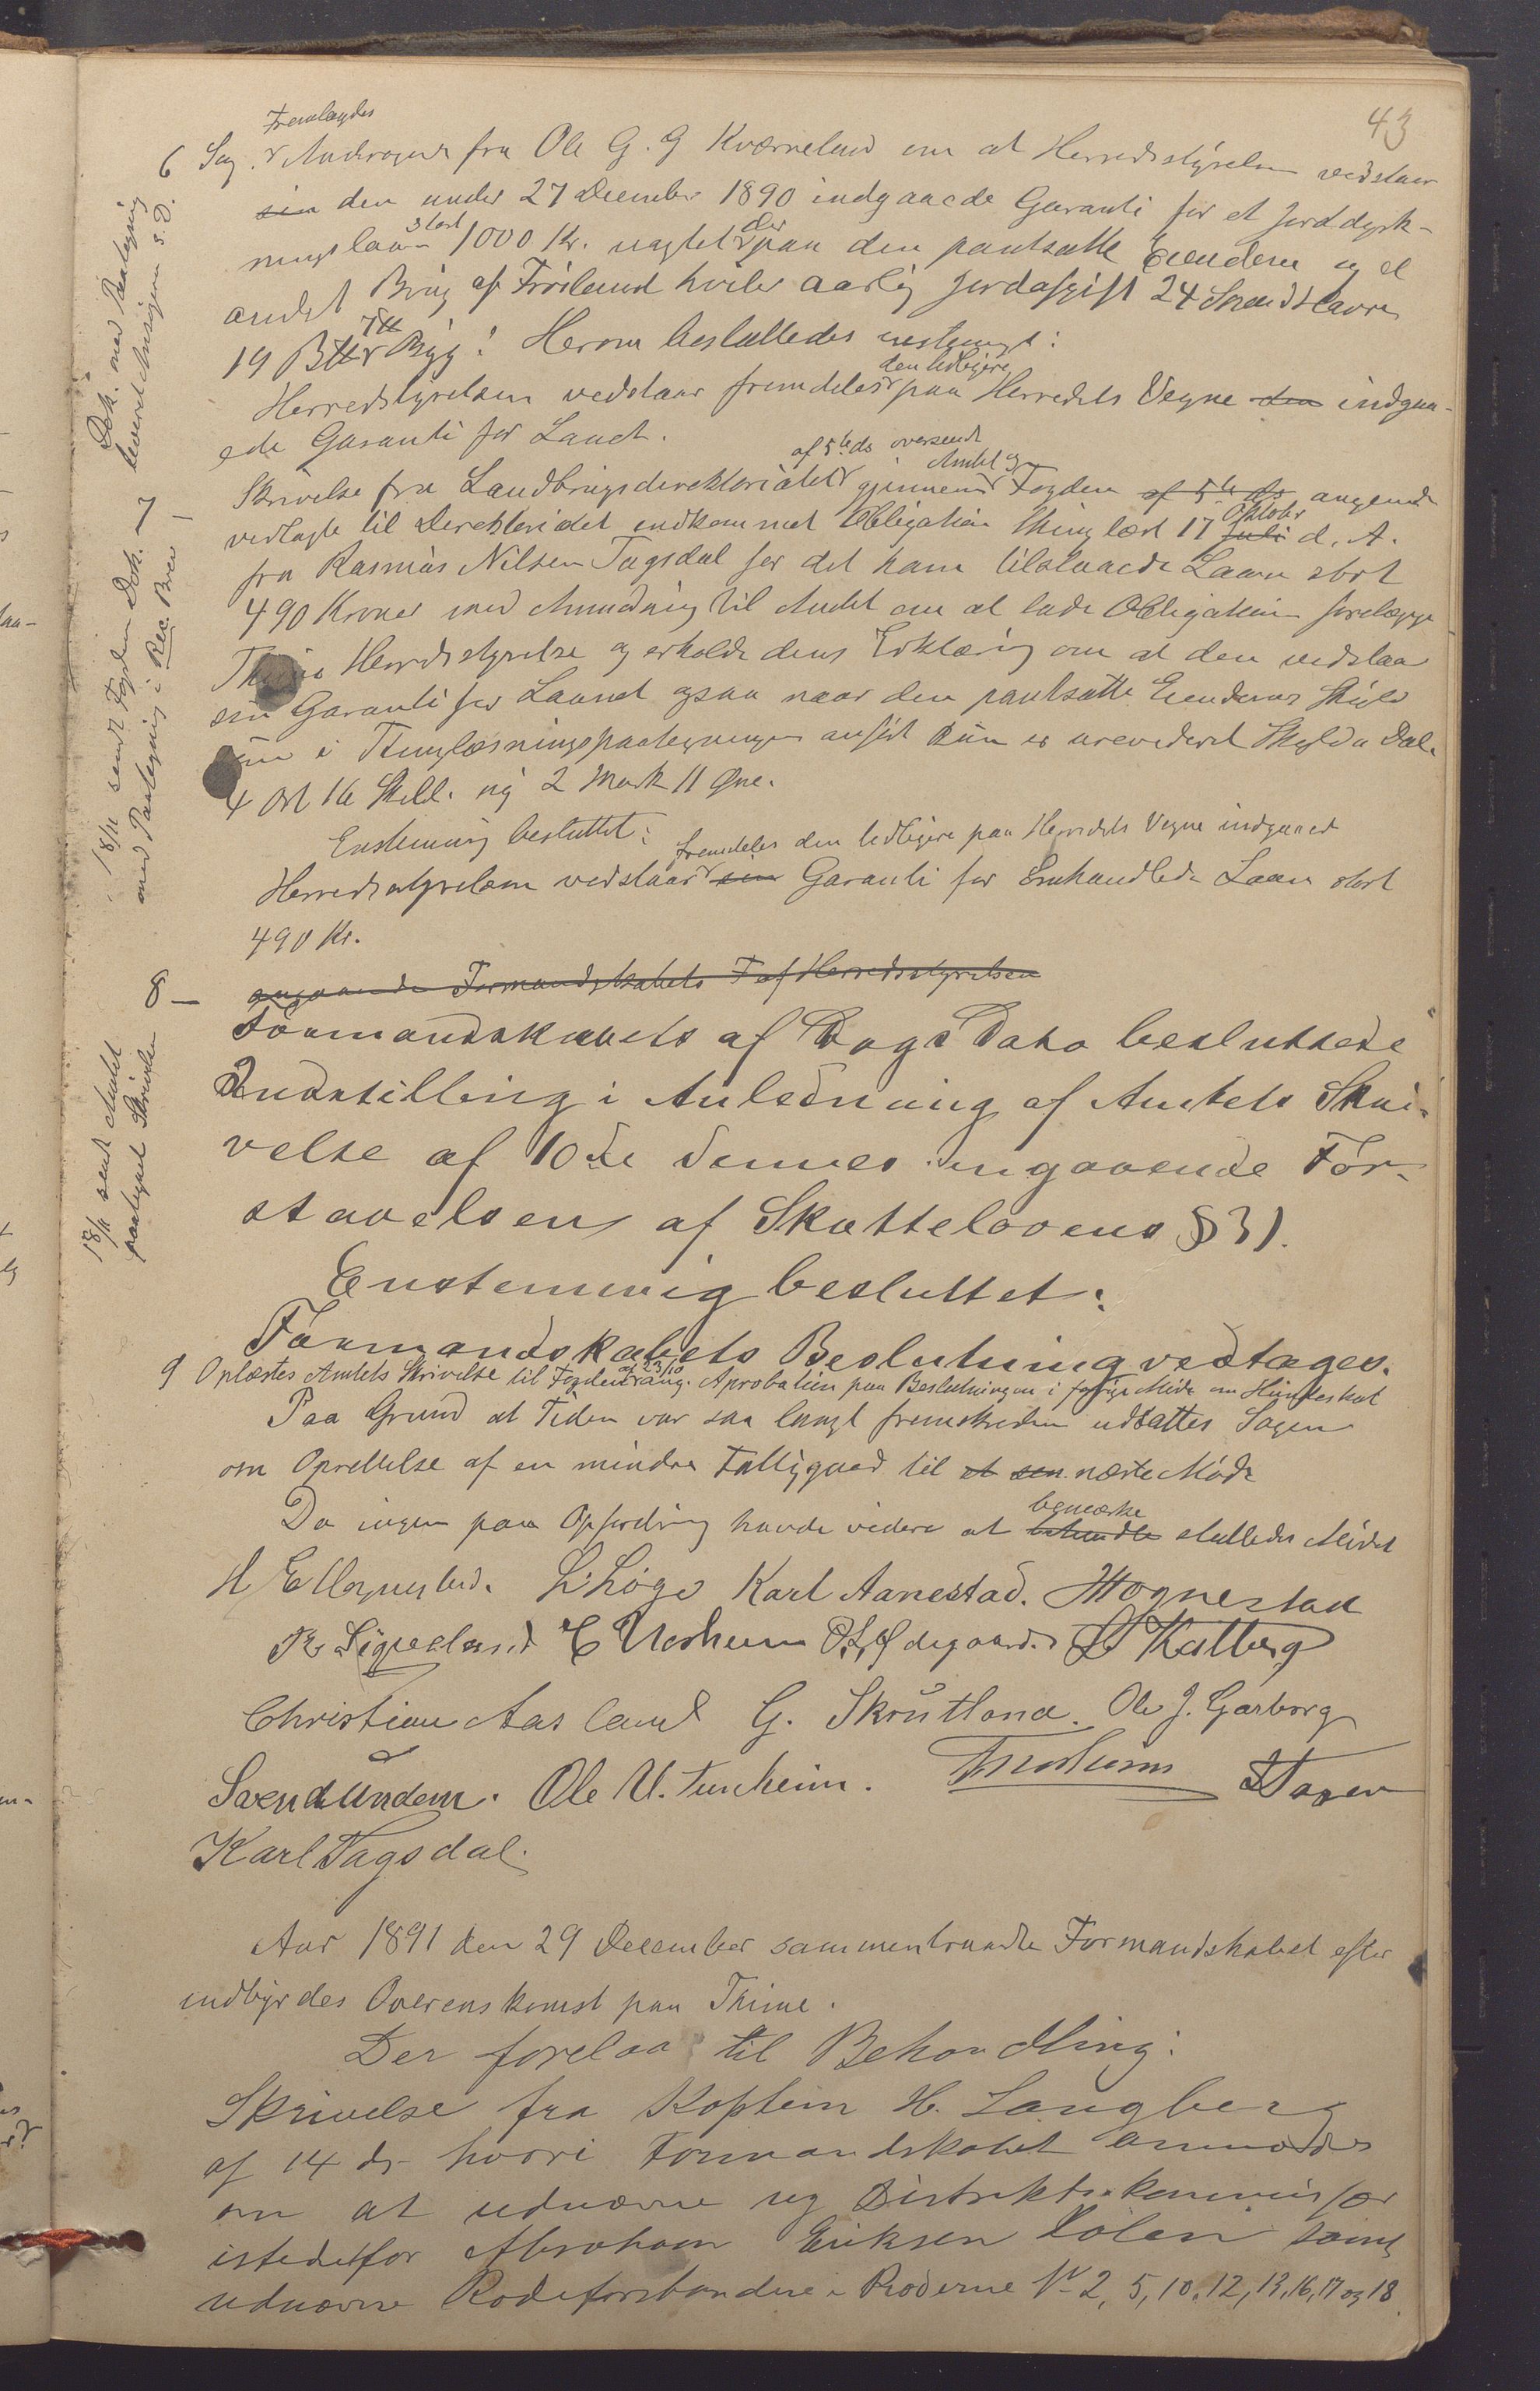 43
Fremlagdes
6 Sag. Andragende fra Ole G. G Kværneland om at Herredsstyrelsen vedstaar
sin den under 27 December 1890 indgaaede Garanti for et Jorddyrk-
ningslaan stort 1000 Kr. uagtet der paa den pantsatte Eiendom og et
andet Brug af Frøiland hviler aarlig Jordafgift 24 Skaand Havre
19 B Byg. Herom besluttedes enstemmigt:
Herredsstyrelsen vedstaar fremdeles den tidligere paa Herredets Vegne den indgaa-
ede Garanti for Laanet.
7 – Skrivelse fra Landbrugsdirektoriatet af 5te ds oversendt gjennem Amtet og Fogden af 5te ds angaaende
vedlagte til Direktoriatet indkommet Obligation thinglæst 17 Oktober Juli d. A.
fra Rasmus Nilsen Tagsdal for det ham tilstaaede Laan stort
490 Kroner med Anmodning til Amtet om at lade Obligation forelægge
Thime Herredsstyrelse og erholde dens Erklæring om at den vedstaar
sin Garanti for Laanet ogsaa naar den pantsatte Eiendoms Skyld
som i Thinglæsningspaategningen anført kun er urevideret Skyld a Dal.
4 Ort 16 Skill. ny 2 Mark 11 Øre.
Enstemmig besluttet:
Herredsstyrelsen vedstaar fremdeles den tidligere paa Herredets Vegne indgaaed sin Garanti for Omhandlede Laan stort
490 Kr.
8 – angaaende Formandskabets F af Herredsstyrelsen
Formandskabets af Dags Dato besluttede
Indstilling i Anledning af Amtets Skri-
velse af 10de dennes angaaende For-
staaelsen af Skattelovens § 31.
Enstemmig besluttet:
Formandskabets Beslutning vedtages.
9 Oplæstes Amtets Skrivelse til Fogden af 23/10 ang. Aprobation paa Beslutningen i forrige Møde om Hundeskat
Paa Grund at Tiden var saa langt fremskreden udsattes Sagen
om Oprettelse af en mindre Fattiggaard til et sen. næste Møde
Da ingen paa Opfordring havde videre at bemærke behandle sluttedes Mødet
H E Hognestad. L. Löge Karl Aanestad. Hognestad
R. Ligueland E Norheim O. L. Ødegaard. Kalberg
Christian Aasland G. Skrutland. Ole J. Garborg
Svend Undem. Ole U. Tunheim.
Karl Tagsdal.
Aar 1891 den 29 December sammentraadte Formandskabet efter
indbyrdes Overenskomst paa Thime.
Der forelaa til Behandling:
Skrivelse fra Koptein H. Langberg
af 14 ds hvori Formandskabet anmodes
om at udnævne ny Distriktskommissær
istedetfor Abraham Eriksen Lølan samt
udnævne Rodeforstandere i Roderne No 2, 5, 10, 12, 13, 16, 17 og 18
Dok. med Paategning
leveret Ansøgeren s. D.
18/11 sendt Fogden Dok.
med Paategning i Rec. Brev
18/11 sendt Amtet
paategnet Skrivelsen